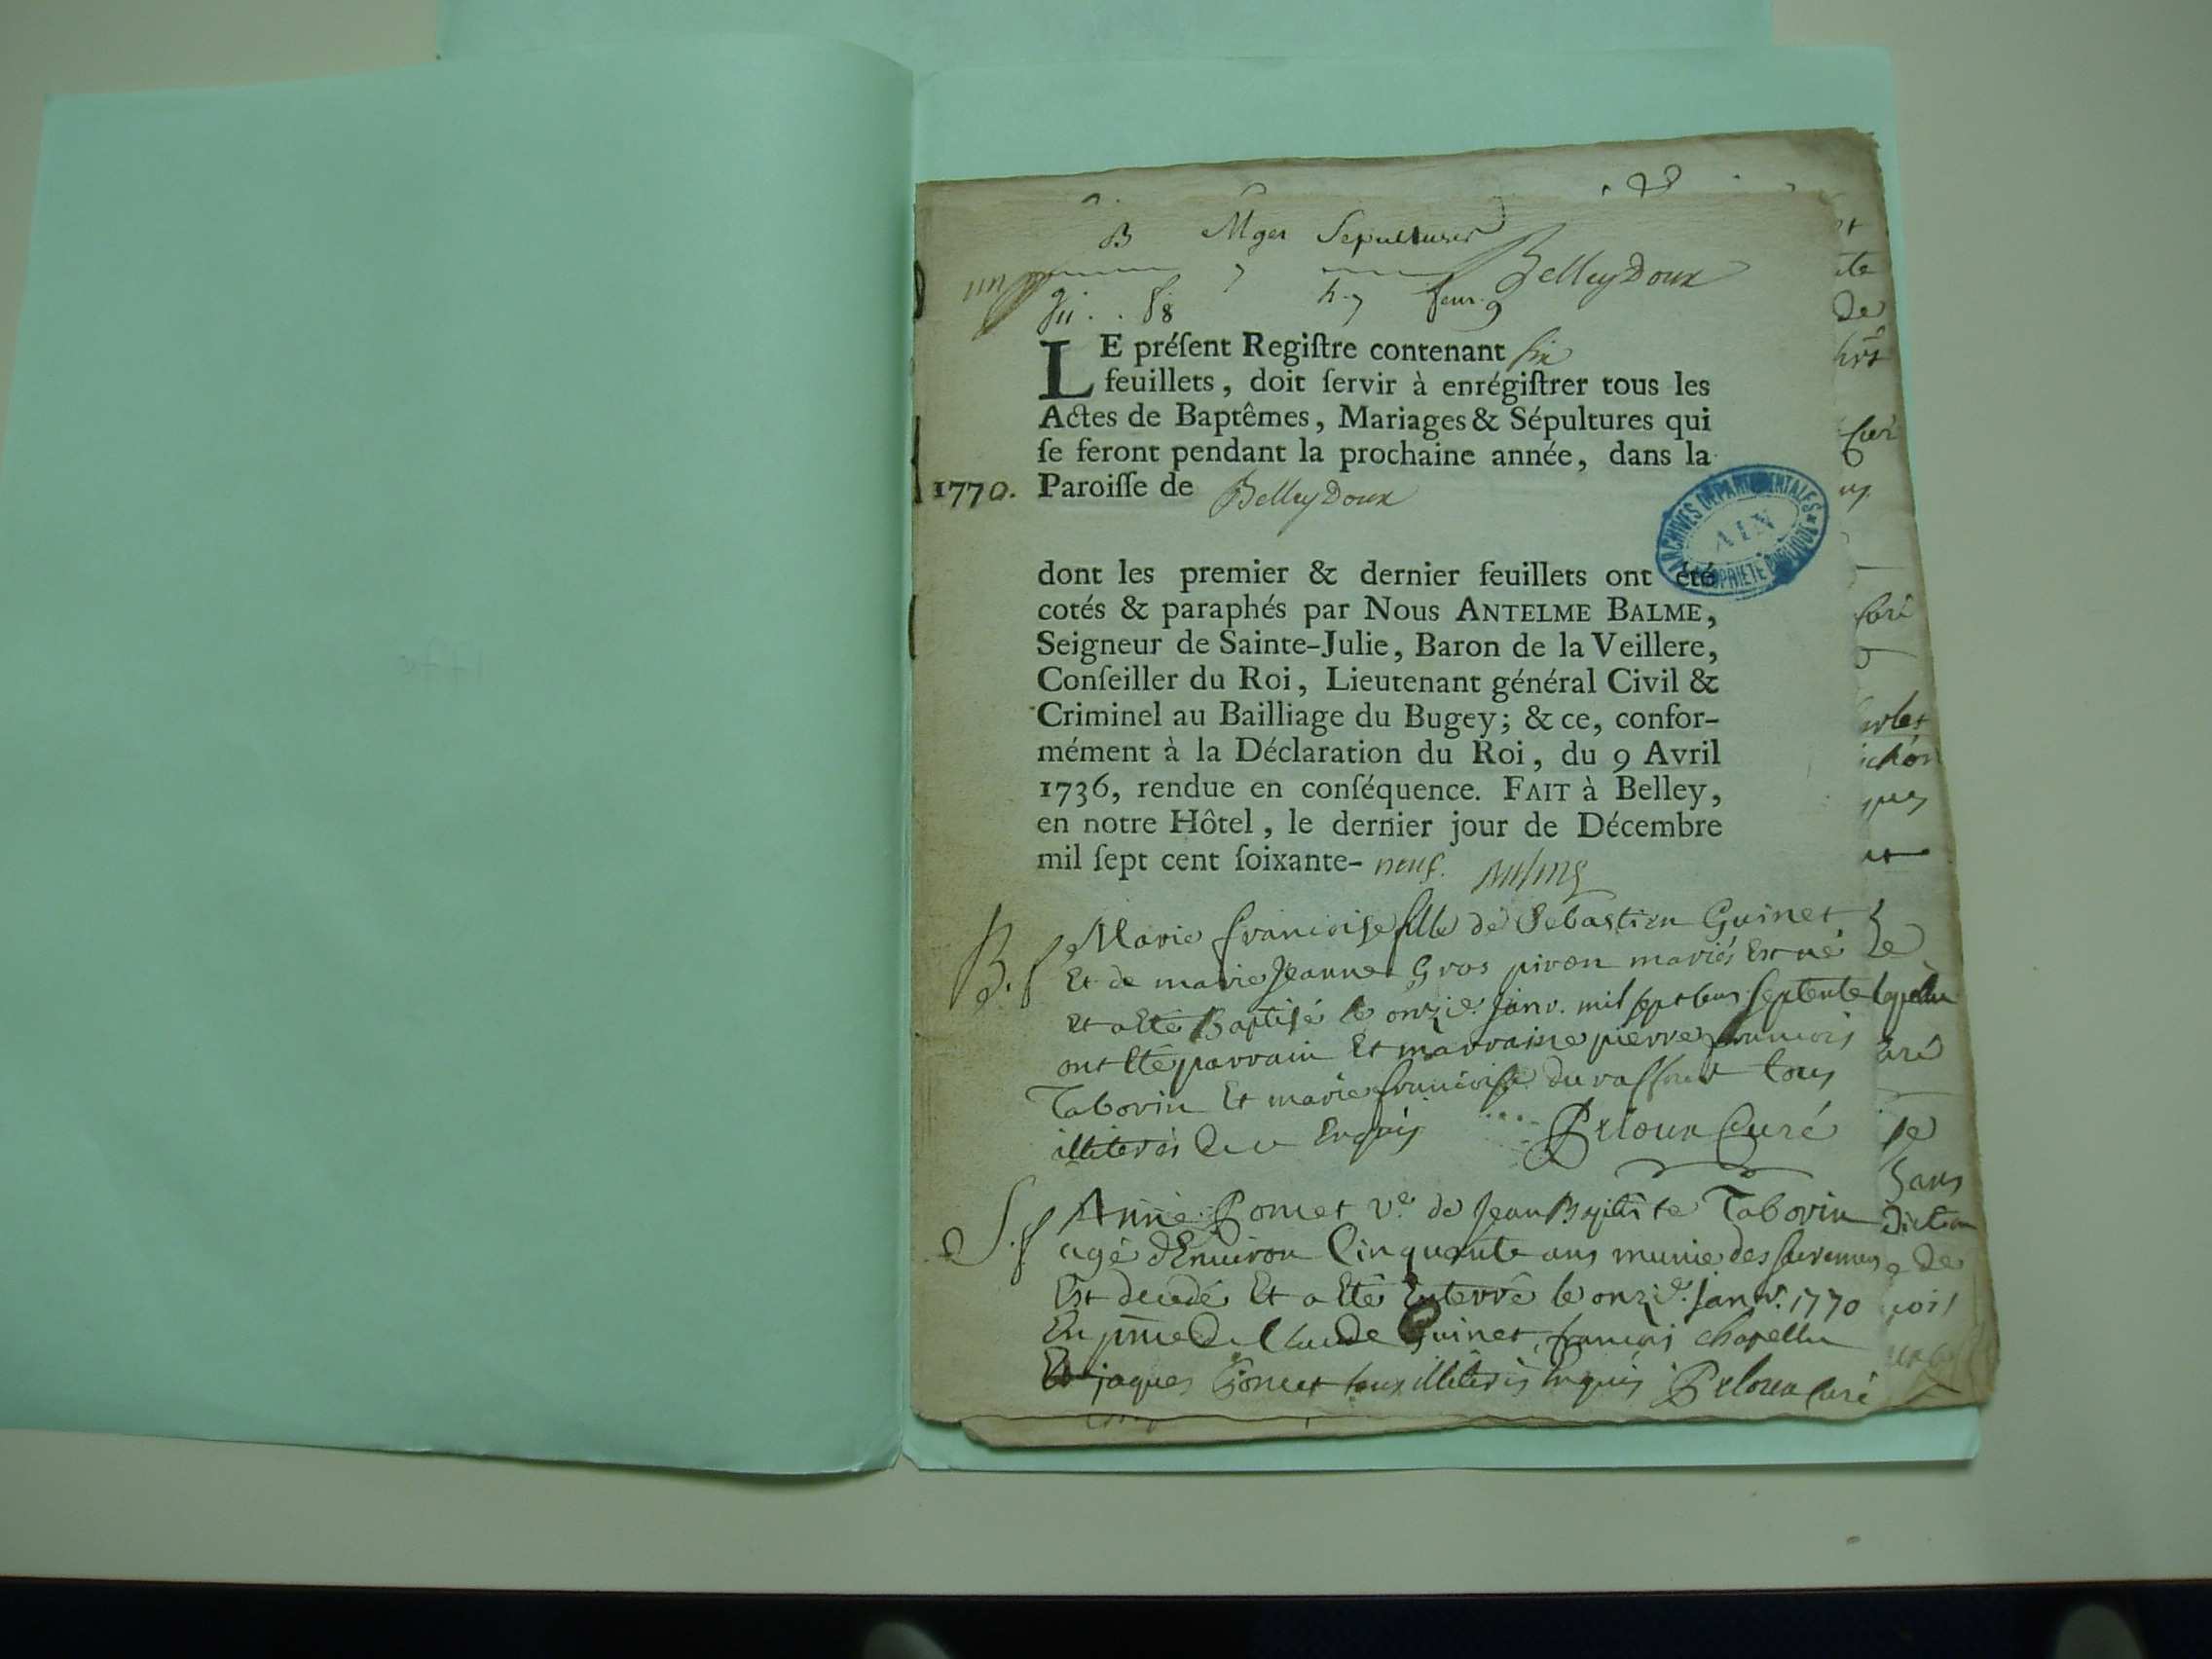 B Mges Sepultures
BelleyDoux
LE préſent Regiſtre contenant ſix
feuillets, doit ſervir à enrégiſtrer tous les
Actes de Baptêmes, Mariages & Sépultures qui
ſe feront pendant la prochaine année, dans la
1770. Paroiſſe de BelleyDoux
ARCHIVES DÉPARTEMENTALES
AIN
PROPRIÉTÉ PUBLIQUE
dont les premier & dernier feuillets ont été
cotés & paraphés par Nous ANTELME BALME,
Seigneur de Sainte-Julie, Baron de la Veillere,
Conſeiller du Roi, Lieutenant général Civil &
Criminel au Bailliage du Bugey; & ce, confor-
mément à la Déclaration du Roi, du 9 Avril
1736, rendue en conſéquence. FAIT à Belley,
en notre Hôtel, le dernier jour de Décembre
mil ſept cent ſoixante- neuf.
B. f Marie francoise fille de Sébastien Guinet
Et de marie Jeanne Gros piron mariés Est né
Et a Eté Baptisé le onzie. Janv. mil sept cens septente
ont Eté parrain Et marraine pierre francois
Taborin Et marie francoise durafour tous
illiterés de ce Enquis curé
S. f Anne Poncet ve. de Jean Baptiste Taborin
agé d'Environ Cinquante ans munie des sacremens
Est decedé Et a Eté Enterré le onzie. Janv. 1770
En pnce de Claude Guinet, francois chapellu
Et jaques Poncet tous illiterés Enquis curé